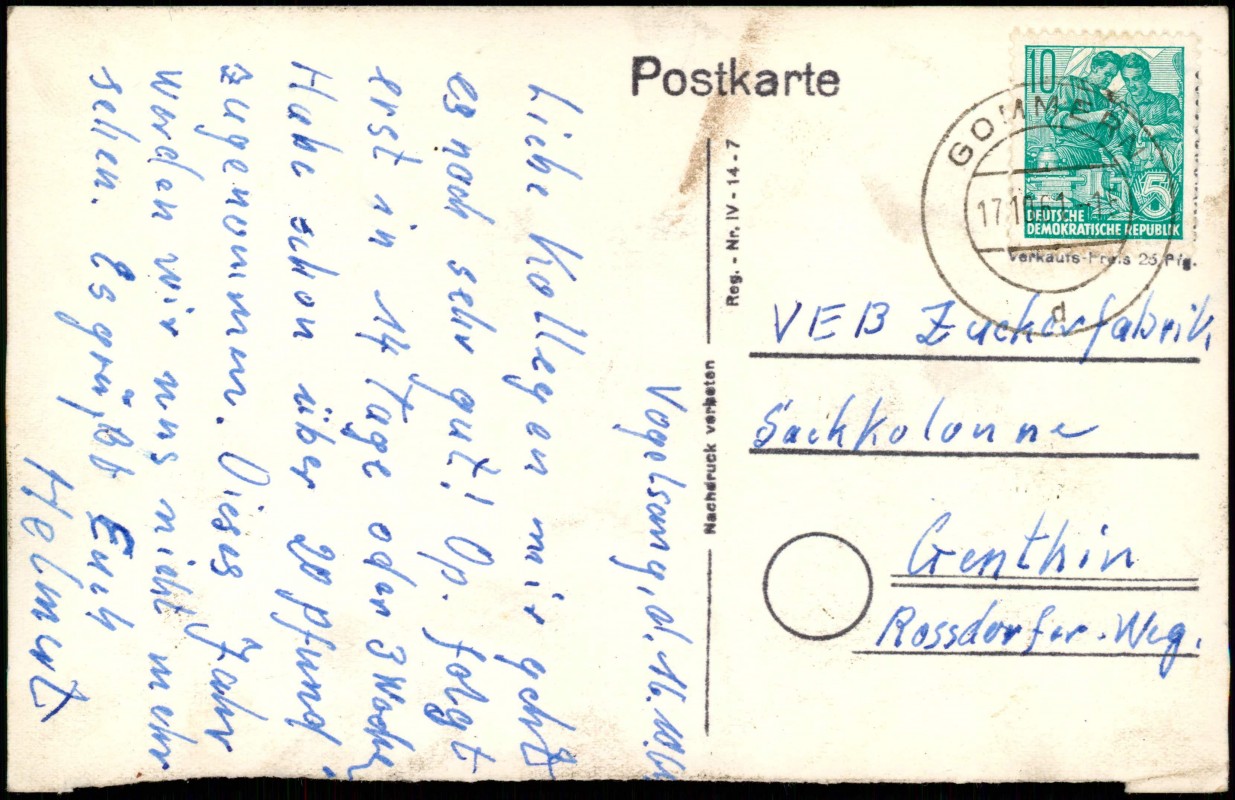 Postkarte
10
5
DEUTSCHE
DEMOKRATISCHE REPUBLIK
GOMMERN
d
Verkaufs-Preis 25 Pfg.
Reg. - Nr. IV - 14 - 7
Nachdruck verboten
VEB Zuckerfabrik,
Sackkolonne
Genthin
Rossdorfer-Weg.
Vogelsang, d. 16.10.61
Liebe Kollegen mir geht
es noch sehr gut! Op. folgt
erst in 14 Tage oder 3 Woche
Habe schon über 20 Pfund
zugenomm. Dieses Jahr
werden wir uns nicht mehr
sehen. Es grüßt Euch
Helmert